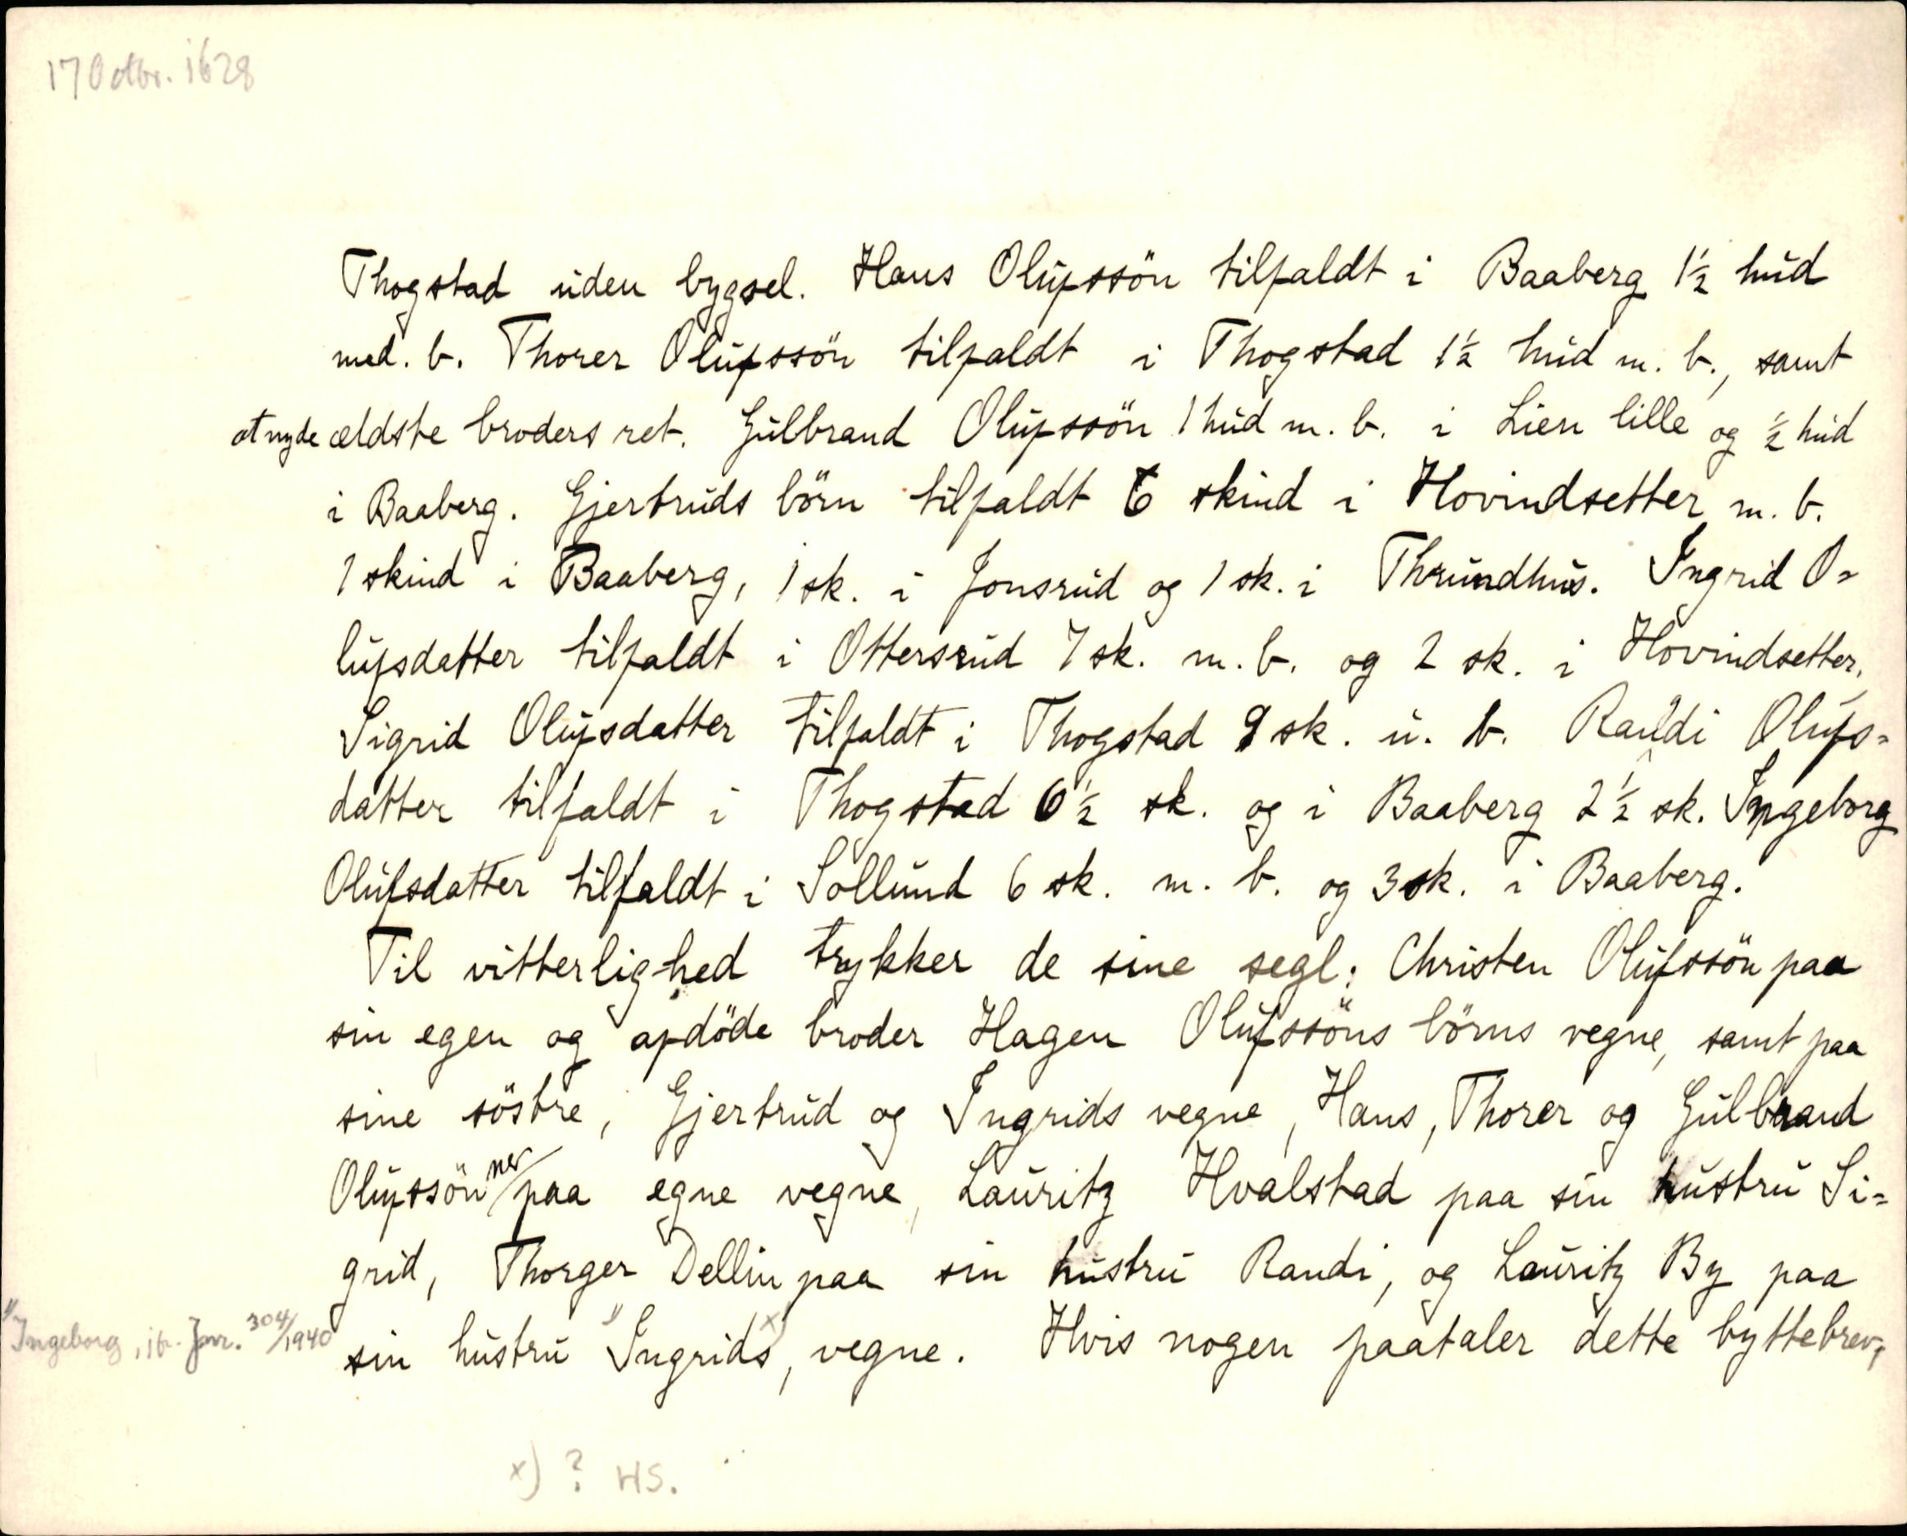 17 Octbr. 1628
Thogstad uden bygsel. Hans Olufssön tilfaldt i Baaberg 1½ hud
med. b. Thorer Olufssön tilfaldt i Thogstad 1½ hud m. b., samt
at nyde ældste broders ret. Gulbrand Olufssön 1 hud m. b. i Lien lille og ½ hud
i Baaberg. Gjertruds börn tilfaldt 6 skind i Hovindsetter m. b.
1 skind i Baaberg, 1 sk. i Jonsrud og 1 sk. i Thrundhus. Ingrid O=
lufsdatter tilfaldt i Ottersrud 7 sk. m. b. og 2 sk. i Hovindsetter.
Sigrid Olufsdatter tilfaldt i Thogstad 9 sk. u. b. Randi Olufs=
datter tilfaldt i Thogstad 6½ sk. og i Baaberg 2½ sk. Ingeborg
Olufsdatter tilfaldt i Sollund 6 sk. m. b. og 3 sk. i Baaberg.
Til vitterlighed trykker de sine segl: Christen Olufssön paa
sin egen og afdöde broder Hagen Olufssöns börns vegne, samt paa
sine söstre, Gjertrud og Ingrids vegne, Hans, Thorer og Gulbrand
Olufssönner paa egne vegne, Lauritz Hvalstad paa sin hustru Si=
grid, Thorger Dellin paa sin hustru Randi, og Lauritz By paa
sin hustru 1) Ingrids x), vegne. Hvis nogen paataler dette byttebrev,
1) Ingeborg, if. Jnr. 304/1940
x) ? HS.